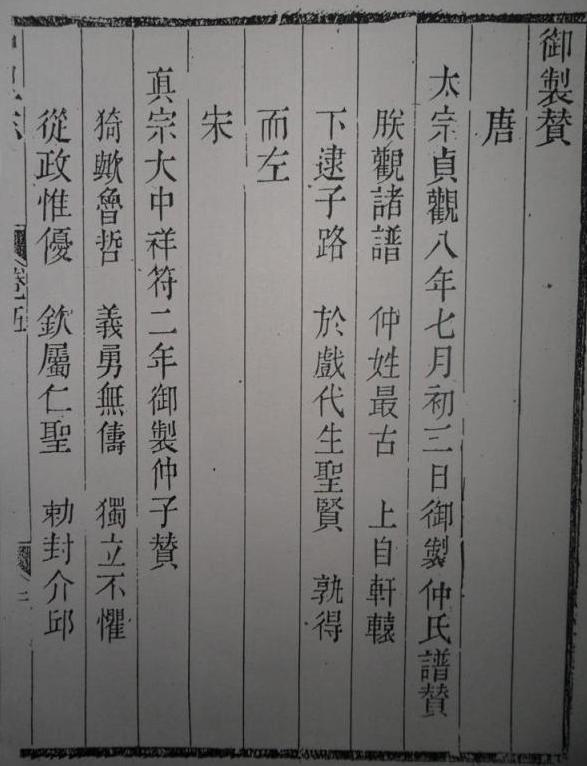 御製賛
唐
太宗貞觀八年七月初三日御製仲氏譜賛
朕觀諸譜　仲姓最古　上自軒轅
下逮子路　於戲代生聖賢　孰得
而左
宋
真宗大中祥符二年御製仲子賛
猗歟魯哲　義勇無儔　獨立不懼
從政惟優　欽屬仁聖　勅封介邱
卷五